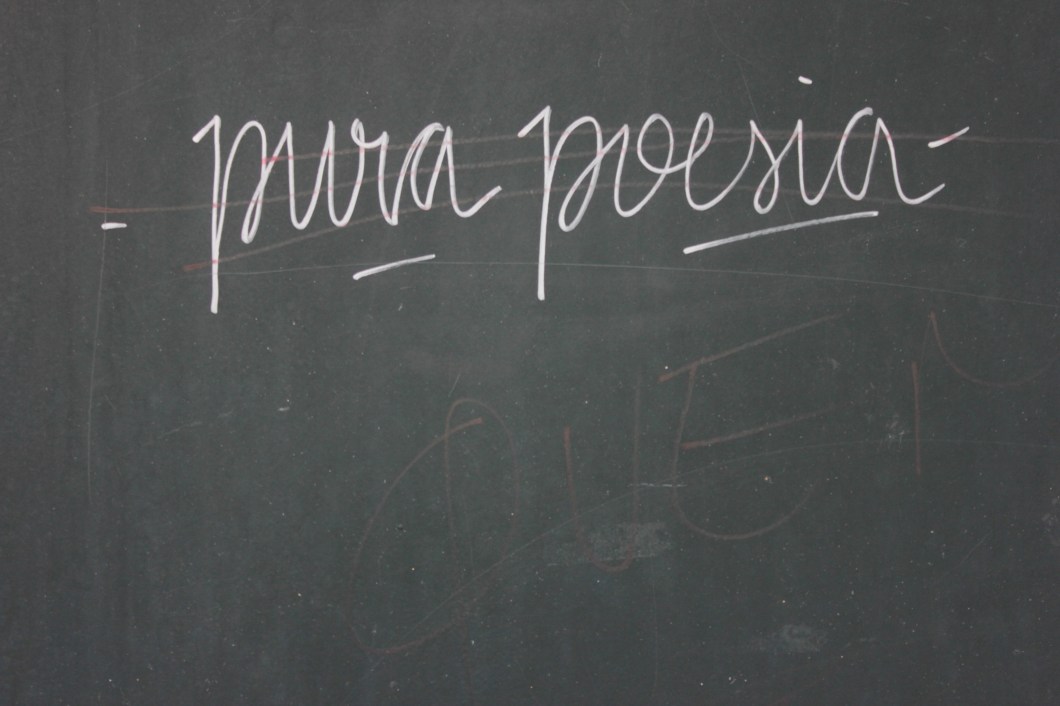 - pura poesia -